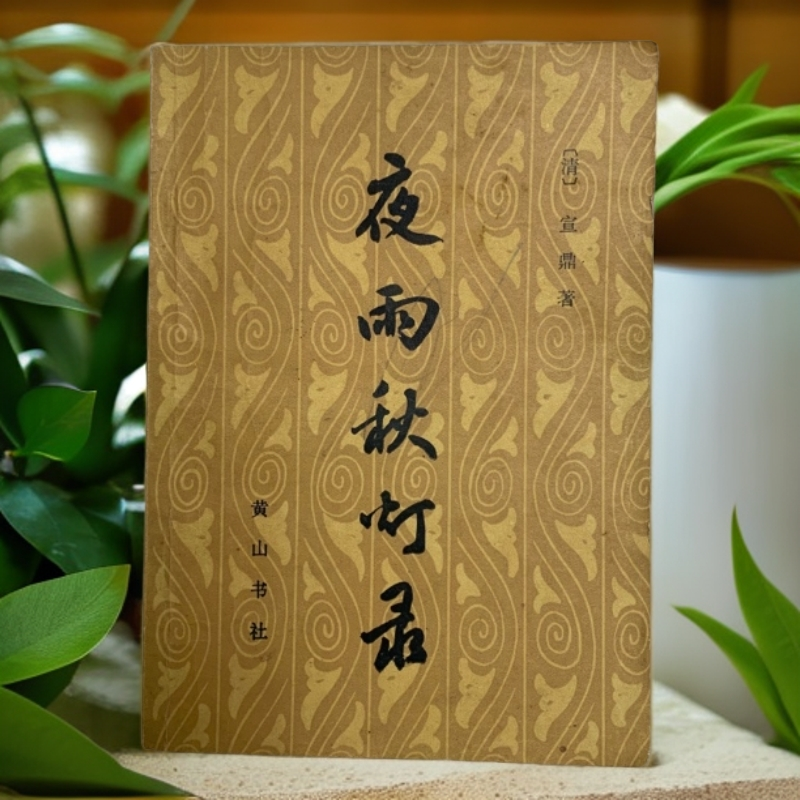 〔清〕宣鼎著
夜雨秋灯录
黄山书社